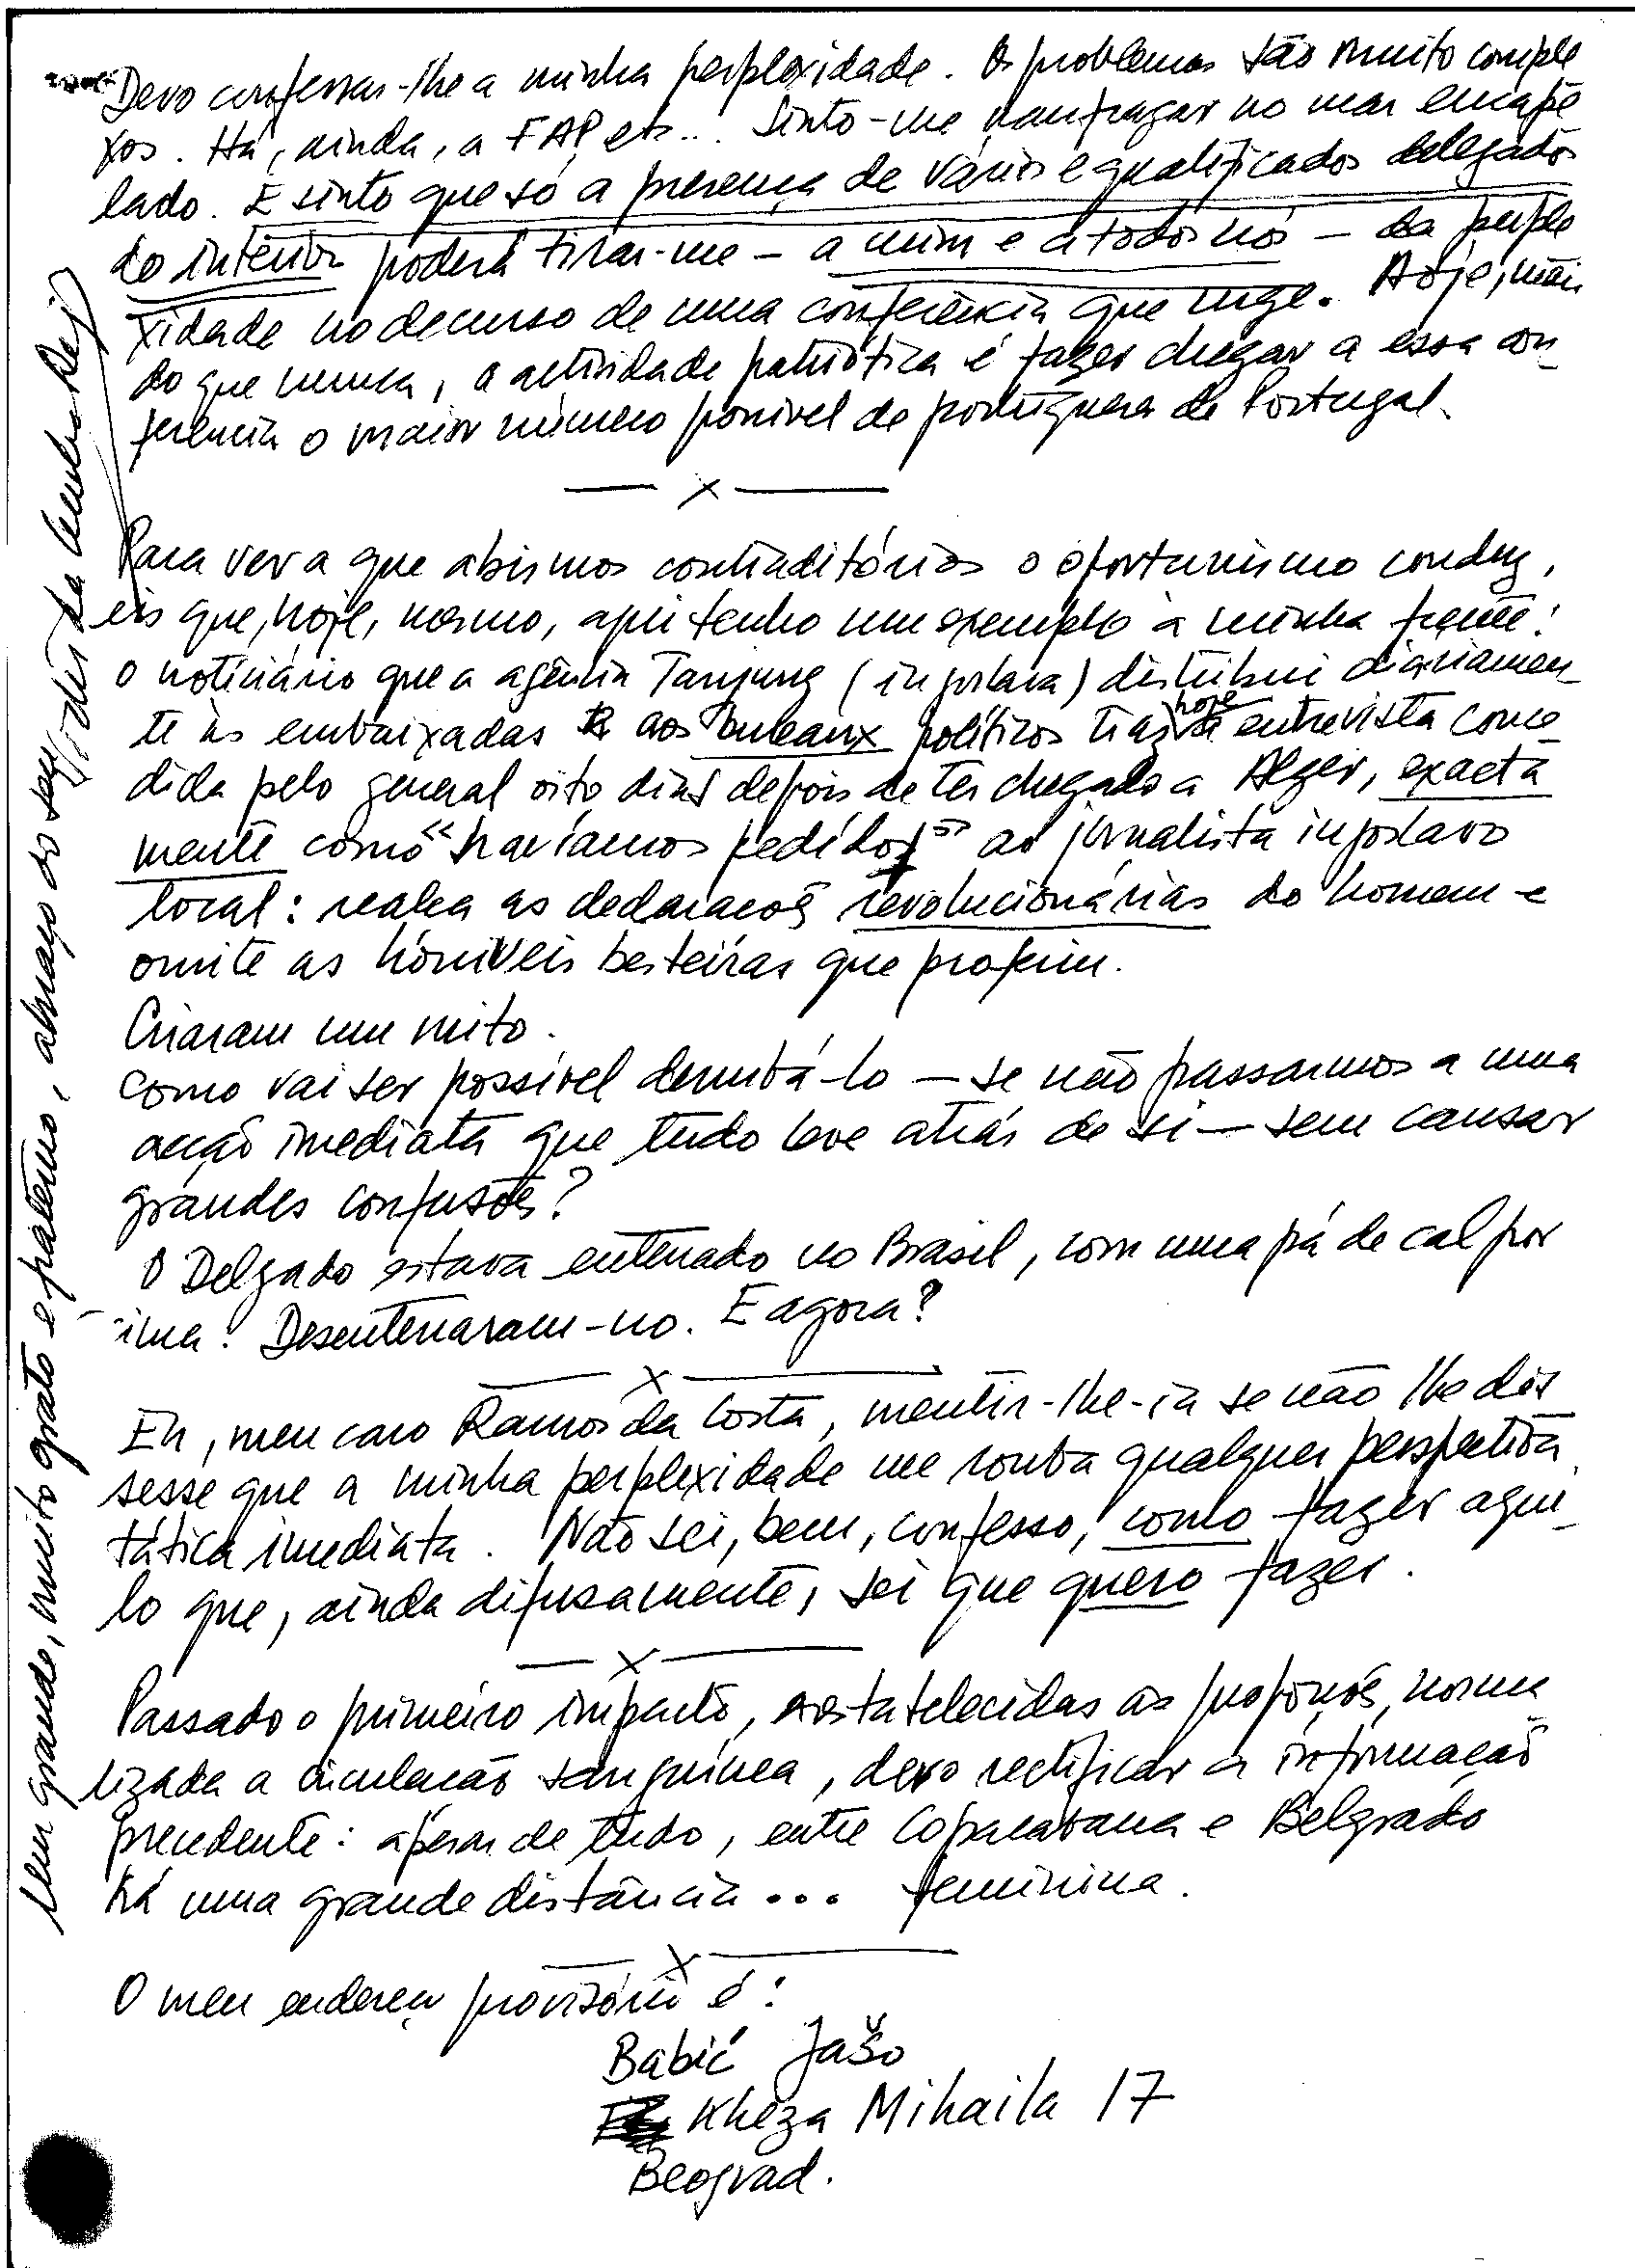 Devo confessar-lhe a minha perplexidade. Os problemas são muito comple
xos. Há, ainda, a FAP, etc... Sinto-me naufragar no mar encape
lado. E sinto que só a presença de vários e qualificados delegados
do interior poderá tirar-me — a mim e a todos nós — da perple
xidade no decurso de uma conferência que urge. Hoje, mais
do que nunca, a actividade patriótica é fazer chegar a essa con-
ferência o maior número possível de portugueses de Portugal.
— x —
Para ver a que abismos contraditórios o oportunismo conduz,
eis que, hoje, mesmo, aqui tenho um exemplo à minha frente:
o noticiário que a agência Tanjung (jugoslava) distribui diàriamen-
te às embaixadas e aos bureaux políticos traz hoje a entrevista conce
dida pelo general oito dias depois de ter chegado a Alger, exacta
mente como "havíamos pedido" ao jornalista jugoslavo
local: realça as declarações revolucionárias do homem e
omite as horríveis besteiras que proferiu.
Criaram um mito.
Como vai ser possível derrubá-lo — se não passarmos a uma
acção imediata que tudo leve atrás de si — sem causar
grandes confusões?
O Delgado estava enterrado no Brasil, com uma pá de cal por
cima. Desenterraram-no. E agora?
— x —
Eh, meu caro Ramos da Costa, mentir-lhe-ia se não lhe dis
sesse que a minha perplexidade me rouba qualquer perspectiva
táctica imediata. Não sei, bem, confesso, como fazer aqui-
lo que, ainda difusamente, sei que quero fazer.
— x —
Passado o primeiro impacto, restabelecidas as proporções, norma
lizada a circulação sanguínea, devo rectificar a informação
precedente: apesar de tudo, entre Copacabana e Belgrado
há uma grande distância... feminina.
— x —
O meu endereço provisório é:
Babić Jašo
Kneza Mihaila 17
Beograd.
Um grande, muito grato e fraterno, abraço do seu